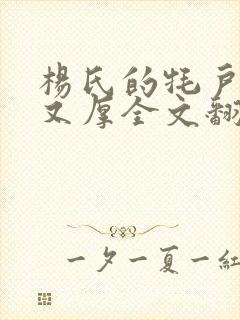 楊氏的牦戶
又厚全文翻
一夕一夏一紅